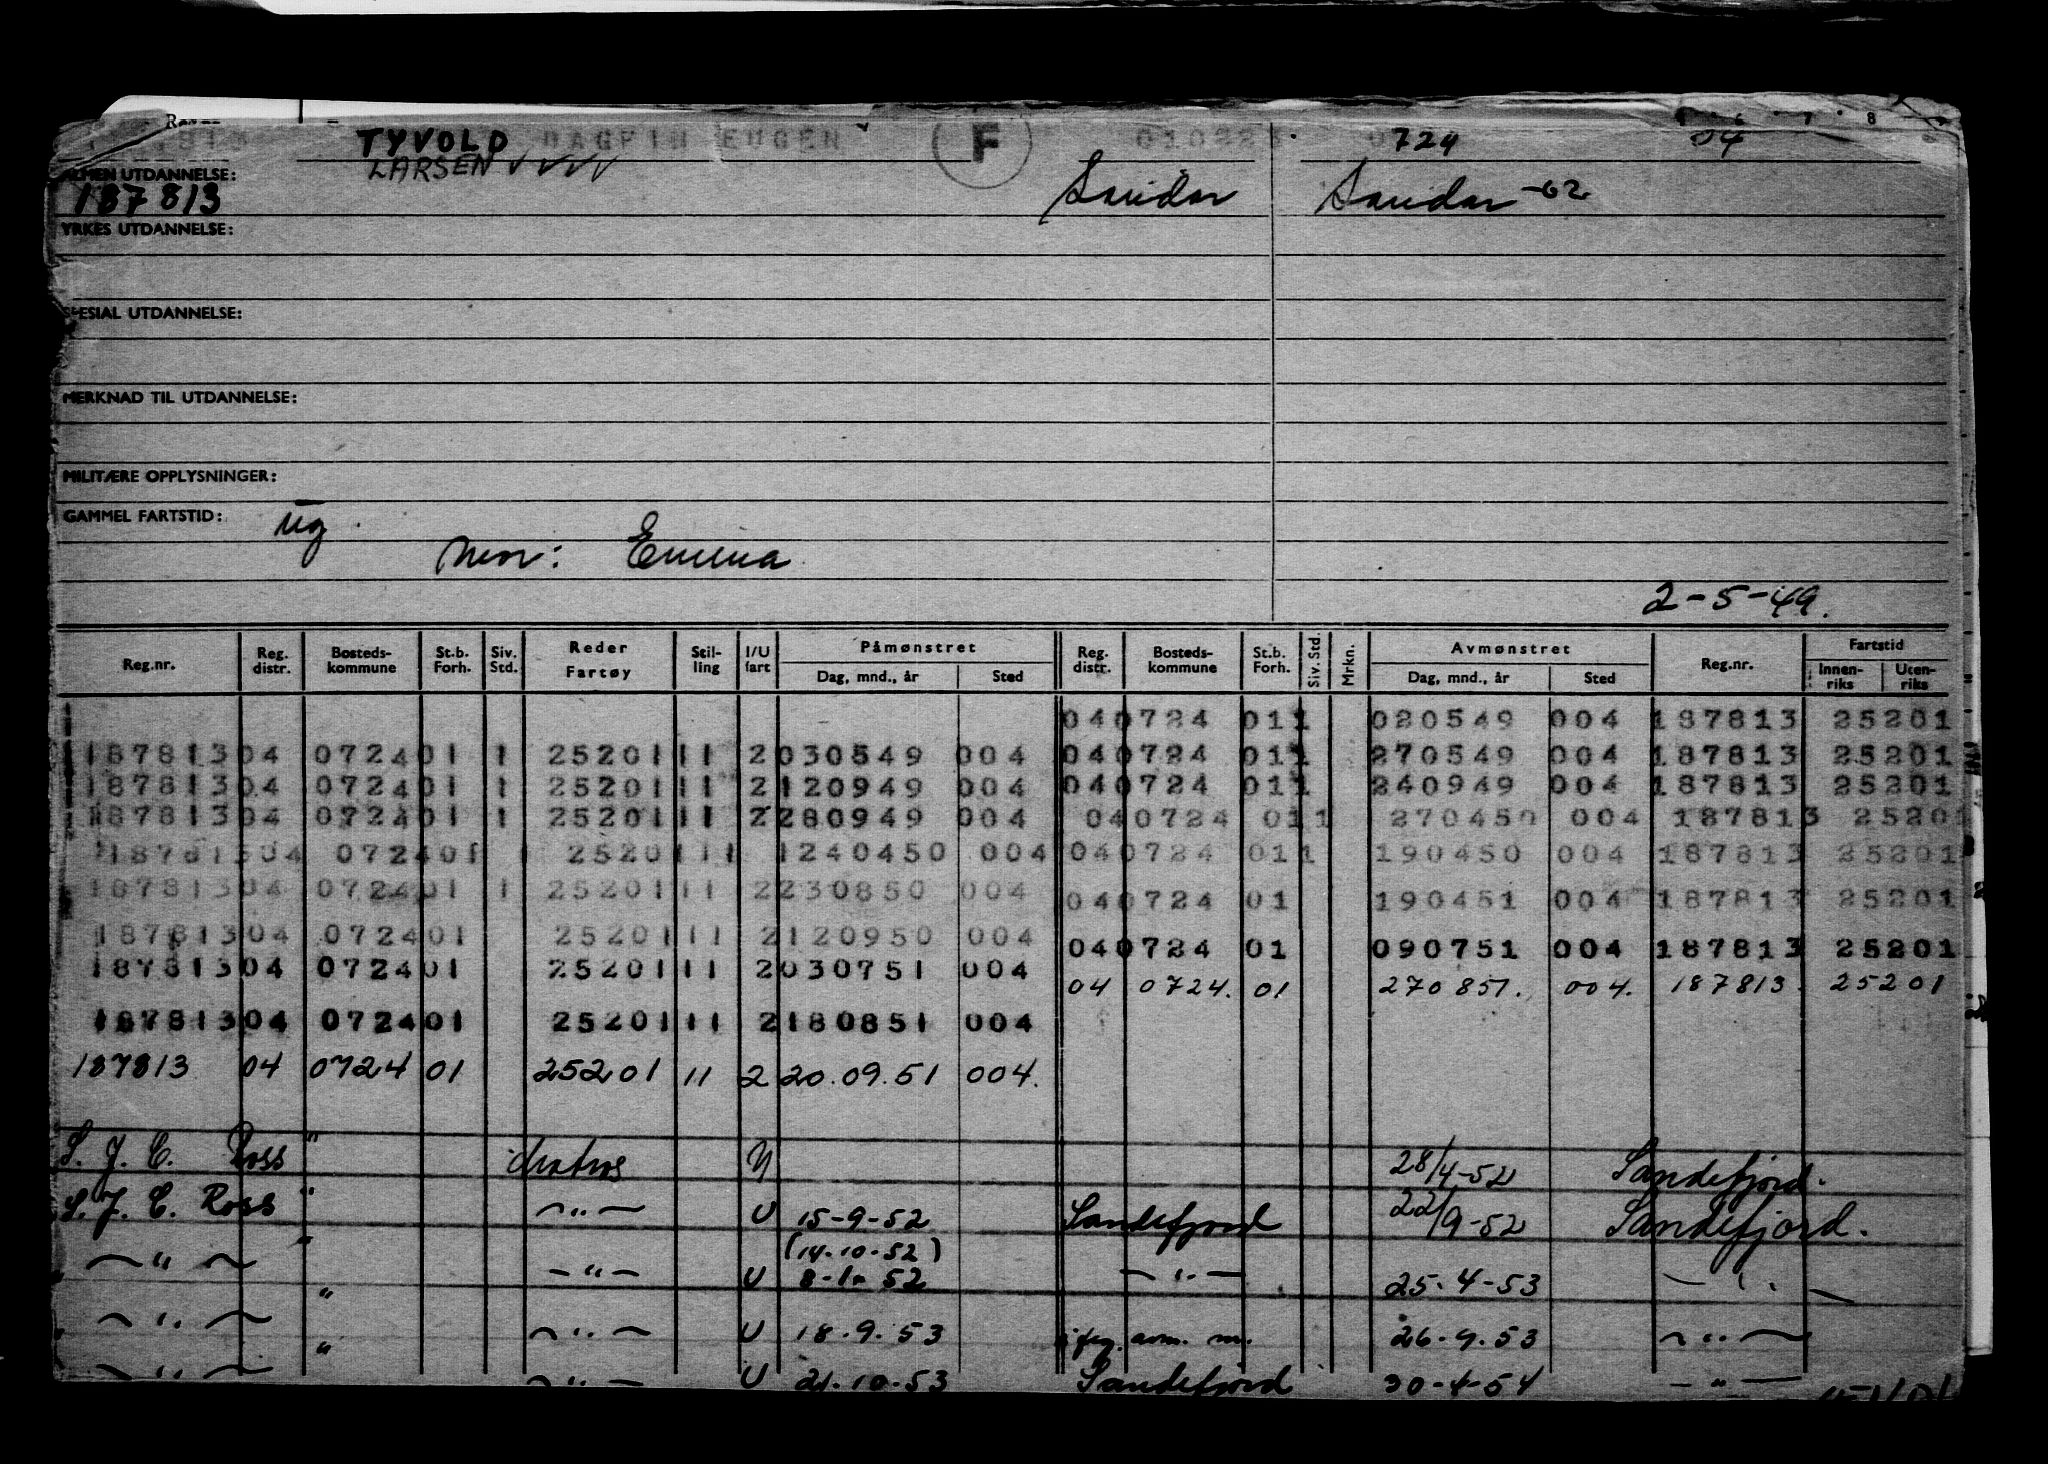 TYVOLD DAGFIN EUGEN F 010223 724 04
LARSEN
ALMEN UTDANNELSE:
187813 Sandar Sandar -62
YRKES UTDANNELSE:
SPESIAL UTDANNELSE:
MERKNAD TIL UTDANNELSE:
MILITÆRE OPPLYSNINGER:
GAMMEL FARTSTID: ug.
Mor: Emma
2-5-49.
Reg.nr. Reg. distr. Bosteds-kommune St.b. Forh. Siv. Std. Reder Fartøy Stil-ling I/U fart Påmønstret Dag, mnd., år Sted Reg. distr. Bosteds-kommune St.b. Forh. Siv. Std. Mrkn. Avmønstret Dag, mnd., år Sted Reg.nr. Fartstid Innen-riks Uten-riks
040724 011 020549 004 187813 25201
187813 04 0724 01 1 25201 11 2 030549 004 040724 011 270549 004 187813 25201
187813 04 0724 01 1 25201 11 2 120949 004 040724 011 240949 004 187813 25201
187813 04 0724 01 1 25201 11 2 280949 004 040724 011 270450 004 187813 25201
187813 04 0724 01 1 25201 11 1 240450 004 040724 011 190450 004 187813 25201
187813 04 0724 01 1 25201 11 2 230850 004 040724 01 190451 004 187813 25201
187813 04 0724 01 25201 11 2 120950 004 040724 01 090751 004 187813 25201
187813 04 0724 01 25201 11 2 030751 004 04 0724. 01 270851. 004. 187813. 25201
187813 04 0724 01 25201 11 2 180851 004
187813 04 0724 01 25201 11 2 20.09.51 004.
S. J. C. Ross " Matros U 28/4-52 Sandefjord.
S. J. C. Ross " -"- U 15-9-52 Sandefjord 22/9-52 Sandefjord.
(14-10-52)
-"- " -"- U 8-10 52 -"- 25-4-53 -"-
-"- " -"- U 18.9.53 avm. 26-9.53 -"-
-"- " -"- U 21-10-53 Sandefjord 30-4-54 -"-